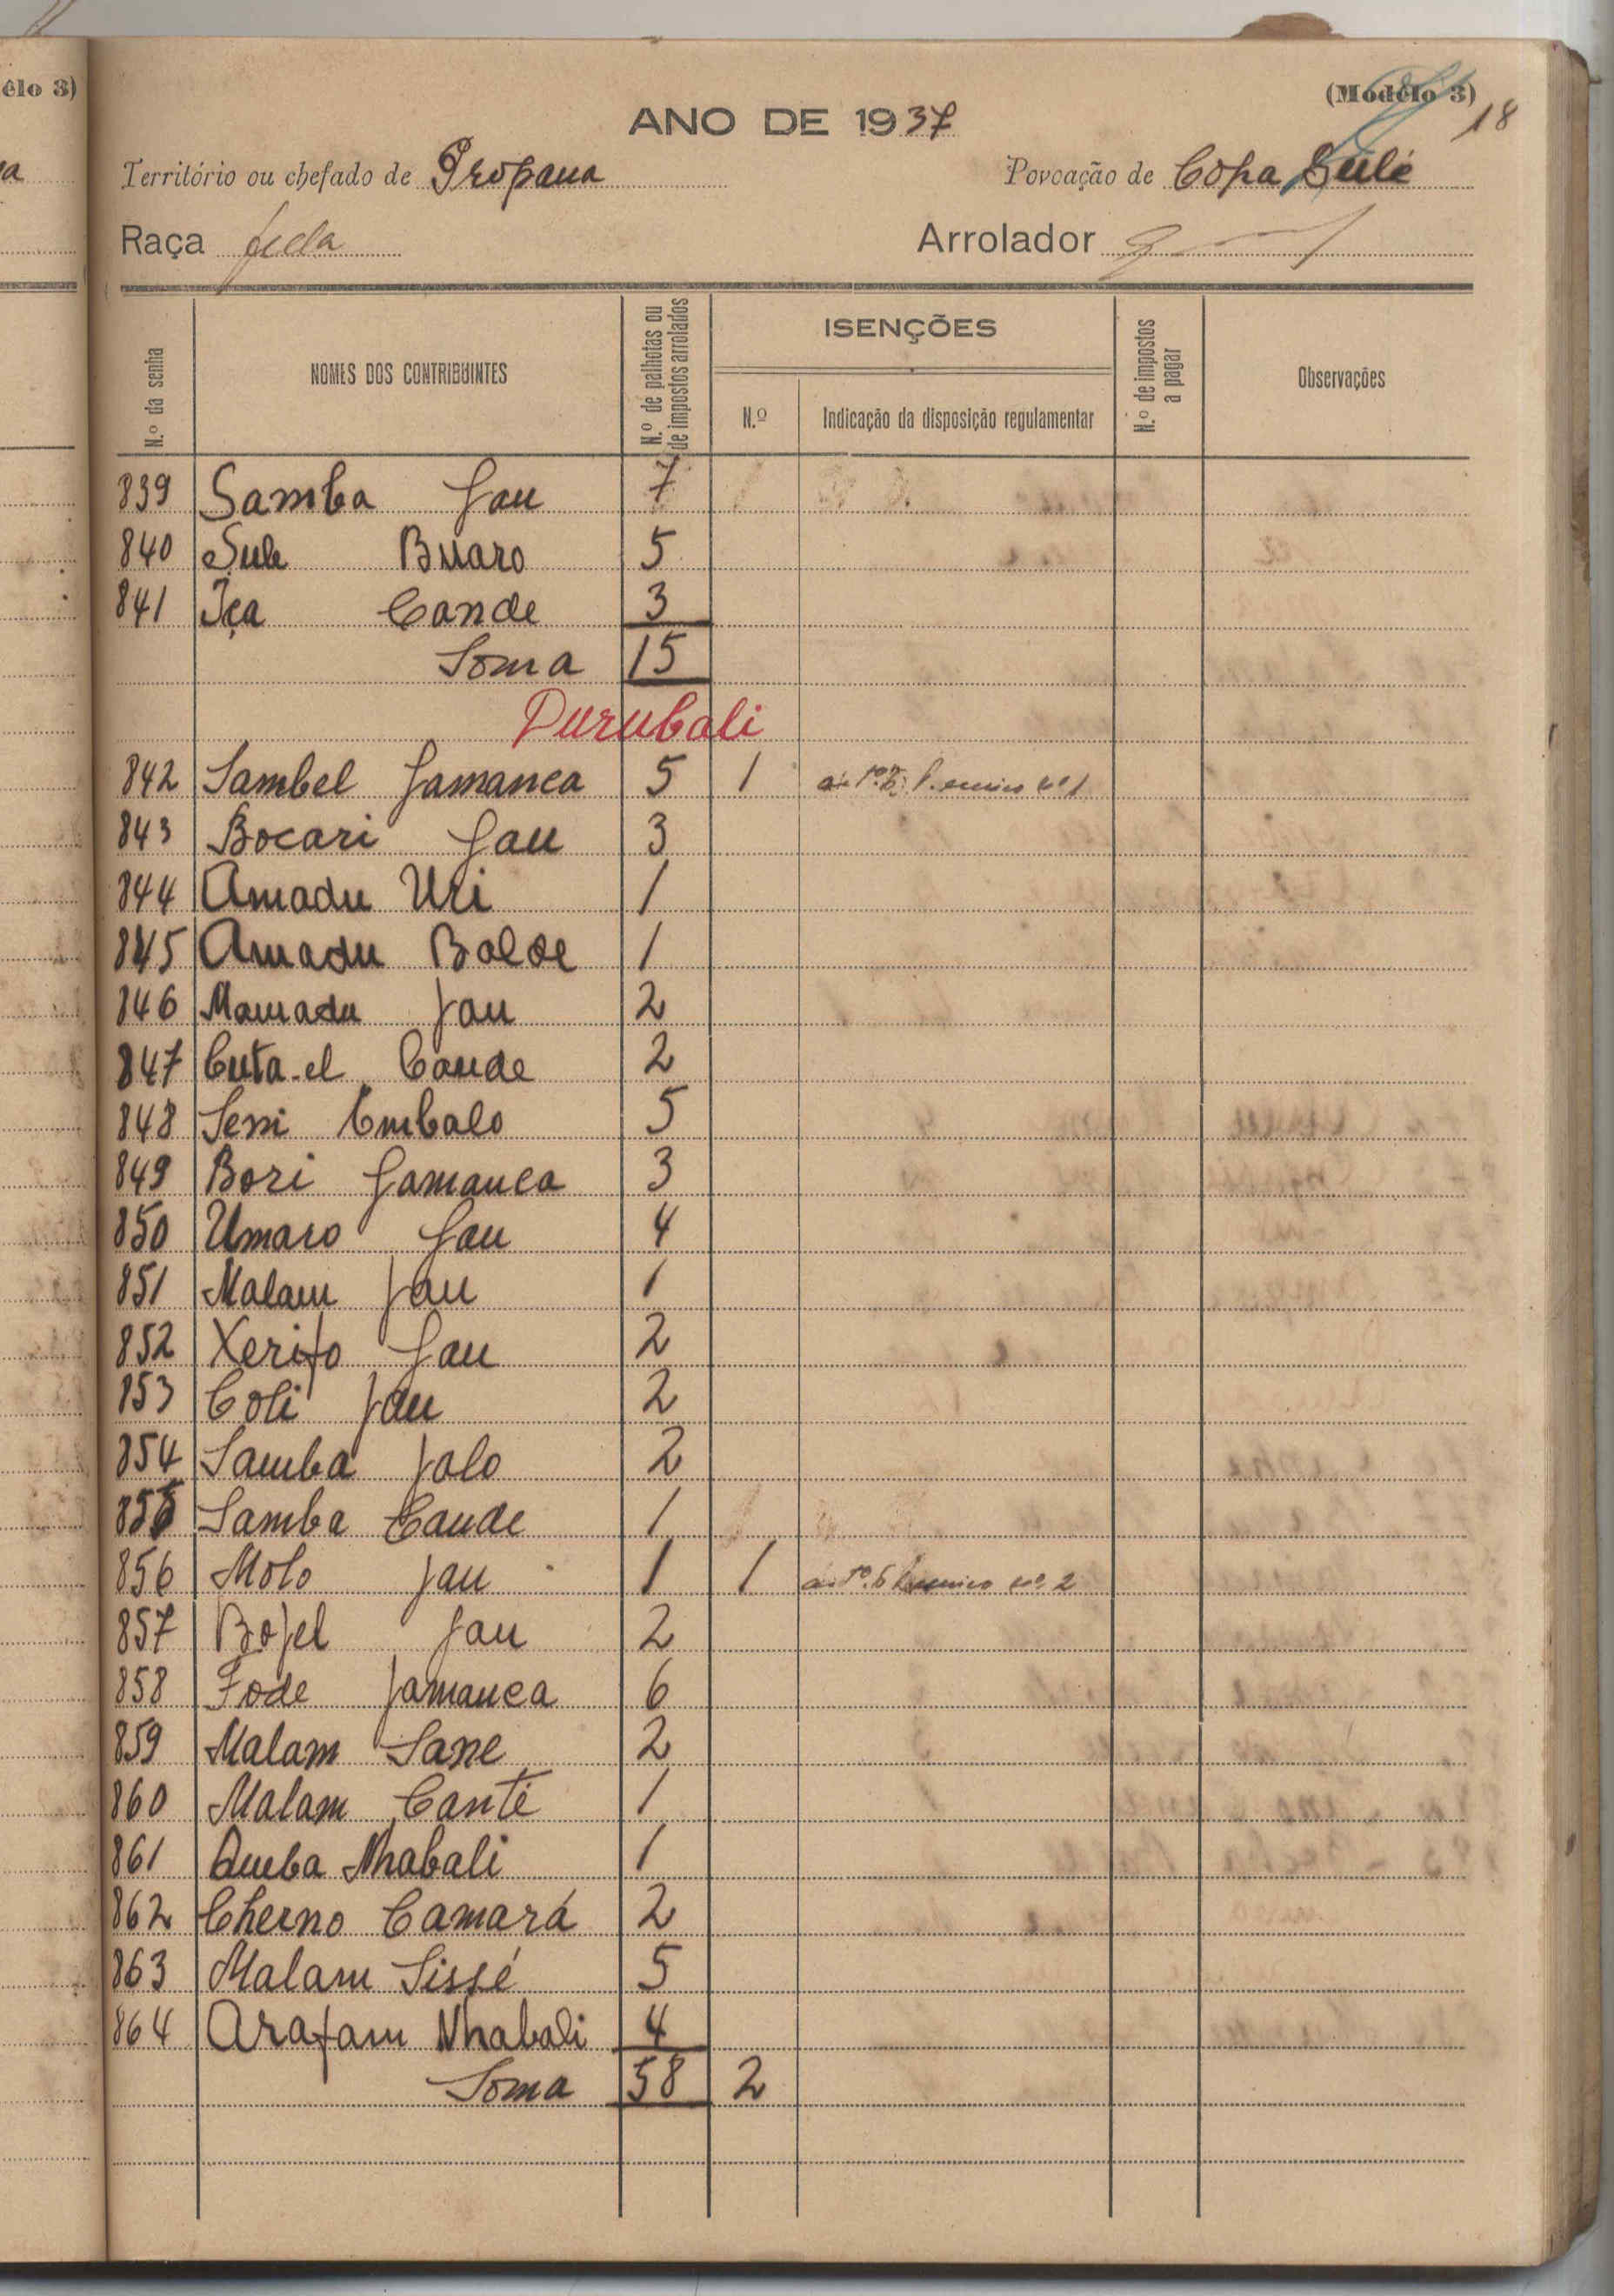 êlo 3)
(Modêlo 3)
18
ANO DE 1937
Território ou chefado de Propana
Povoação de Copa Sulé
Raça fula
Arrolador
N.º da senha
NOMES DOS CONTRIBUINTES
N.º de palhotas ou de impostos arrolados
ISENÇÕES
N.º
Indicação da disposição regulamentar
N.º de impostos a pagar
Observações
839 Samba Jau 7
840 Sule Buaro 5
841 Iça Cande 3
Soma 15
Durubali
842 Sambel Jamanca 5 1 nº 1
843 Bocari Jau 3
844 Amadu Uri 1
845 Amadu Balde 1
846 Mamadu Jau 2
847 Cuta-el Cande 2
848 Seni Embalo 5
849 Bori Jamanca 3
850 Umaro Jau 4
851 Malam Jau 1
852 Xerifo Jau 2
853 Coli Jau 2
854 Samba Jalo 2
855 Samba Cande 1
856 Molo Jau 1 1 nº 2
857 Bojel Jau 2
858 Fode Jamanca 6
859 Malam Sane 2
860 Malam Canté 1
861 Queba Nhabali 1
862 Cherno Camará 2
863 Malam Sissé 5
864 Arafam Nhabali 4
Soma 58 2